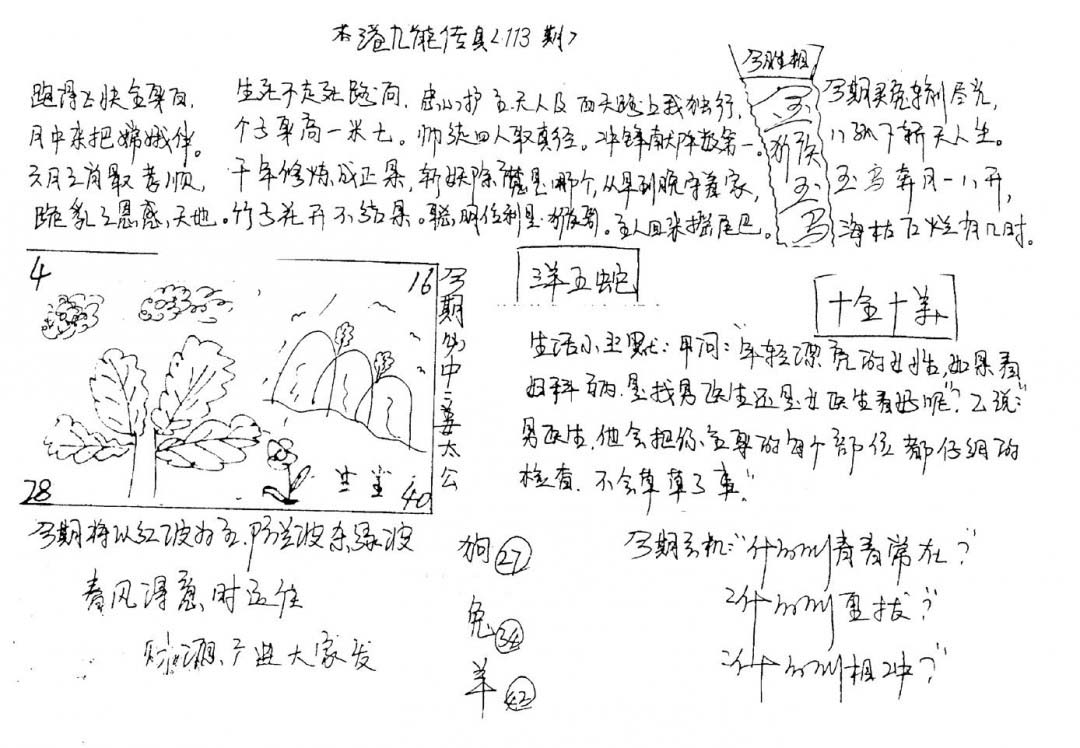 香港九龍传真<113期>
跑得飞快全身白，
月中来把嫦娥伴。
六月三前最孝顺，
跪乳之恩感天地。
生死不走死路问，忠心护主天人及 西天路上我独行，
个子身高一米七。师徒四人取真经。冲锋献阵数第一。
千年修炼成正果，斩妖除魔是哪个，从早到晚守着家，
竹子花开不结果。聪明伶利是猴哥。主人回来摇尾巴。
今胜相
玉
狗猴
玉
马
今期买兔
八
玉马奔月一八开，
海枯石烂有几时。
4
16
28
40
今期如中二姜太公
洋五蛇
十全十美
生活小幽默：甲问："年轻漂亮的女性，如果看
妇科病，是找男医生还是女医生看好呢？"乙说："
男医生，他会把你全身的每个部位都仔细的
检查，不会草草了事。"
今期将以红波为主，防兰波杀绿波
春风得意时运佳
财源广进大家发
狗㉗
兔㉞
羊㊷
今期玄机："什么叫青青常在？"
2什么叫直拔？"
3什么叫相冲？"